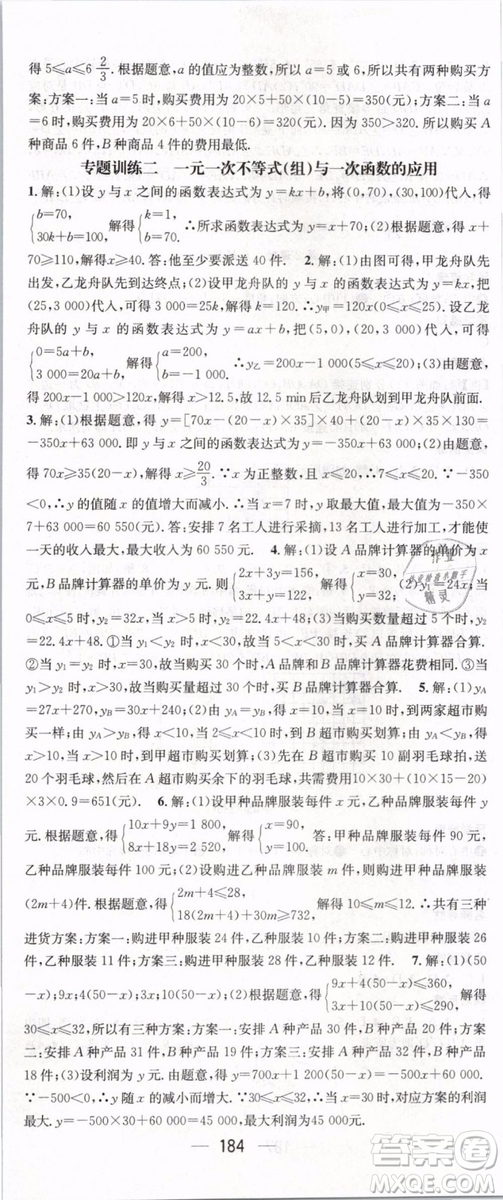 得 5≤a≤6 2/3. 根据题意,a 的值应为整数,所以 a=5 或 6,所以共有两种购买方
案:方案一:当 a=5 时,购买费用为 20×5+50×(10-5)=350(元);方案二:当 a
=6 时,购买费用为 20×6+50×(10-6)=320(元). 因为 350>320. 所以购买 A
种商品 6 件,B 种商品 4 件的费用最低.
专题训练二 一元一次不等式(组)与一次函数的应用
1. 解:(1)设 y 与 x 之间的函数表达式为 y=kx+b,将(0,70),(30,100)代入,得
{b=70, 30k+b=100, 解得{k=1, b=70. ∴所求函数表达式为 y=x+70;(2)根据题意,得 x+
70≥110,解得 x≥40. 答:他至少要派送 40 件. 2. 解:(1)由图可得,甲龙舟队先
出发,乙龙舟队先到达终点;(2)设甲龙舟队的 y 与 x 的函数表达式为 y=kx,把
(25,3 000)代入,可得 3 000=25k,解得 k=120. ∴y甲=120x(0≤x≤25). 设乙龙
舟队的 y 与 x 的函数表达式为 y=ax+b,把(5,0),(20,3 000)代入,可得
{0=5a+b, 3 000=20a+b, 解得{a=200, b=-1 000. ∴y乙=200x-1 000(5≤x≤20);(3)由题意,
得 200x-1 000>120x,解得 x>12.5,故 12.5 min后乙龙舟队划到甲龙舟队前面.
3. 解:(1)根据题意,得 y=[70x-(20-x)×35]×40+(20-x)×35×130=
-350x+63 000. 即 y 与 x 之间的函数表达式为 y=-350x+63 000;(2)根据题意,得
70x≥35(20-x),解得 x≥20/3. ∵x 为正整数,且 x≤20,∴7≤x≤20. ∵-350
<0,∴y 的值随 x 的值增大而减小. ∴当 x=7 时,y 取最大值,最大值为-350×
7+63 000=60 550(元). 答:安排 7 名工人进行采摘,13 名工人进行加工,才能使
一天的收入最大,最大收入为 60 550 元. 4. 解:(1)设 A 品牌计算器的单价为 x
元,B 品牌计算器的单价为 y 元,则{2x+3y=156, 3x+y=122, 解得{x=30, y=32; (2)y₁=24x;当
0≤x≤5 时,y₂=32x,当 x>5 时,y₂=22.4x+48;(3)当购买数量超过 5 个时,y₂
=22.4x+48. ①当 y₁<y₂ 时,x<30,故当购买数量不足 30 个时,购买 A 品牌计算器合算.
②当 y₁=y₂ 时,x=30,故当购买 30 个时,A 品牌和 B 品牌计算器花费相同. ③当
y₁>y₂ 时,x>30,故当购买数量超过 30 个时,购买 B 品牌计算器合算. 5. 解:(1)
(2)当 yA<yB 时,x<10,到 A 超市购买划算;当 yA=yB 时,x=10,到两家超市购
买一样划算;当 yA>yB 时,x>10,到 B 超市购买划算;(3)
20 个羽毛球,后在 A 超市购买余下的羽毛球,共需费用10×30+(10×15-20)
×3×0.9=651(元). 6. 解:(1)设购进甲种品牌服装每件 x 元,乙种品牌服装每件 y
元,由题意,得{10x+9y=1 800, 8x+18y=1 260, 解得{x=90, y=100. 答:甲种品牌服装每件 90 元,
乙种品牌服装每件 100 元;(2)设购进乙种品牌服装 m 件,则购进甲种品牌服装
(2m+4)件. 根据题意,得{2m+4≤28, 18(2m+4)+30m≥732, 解得 10≤m≤12. ∴共有三种
进货方案:方案一:购进甲种服装 24 件,乙种服装 10 件;方案二:购进甲种服装 26
件,乙种服装 11 件;方案三:购进甲种服装 28 件,乙种服装 12 件. 7. 解:(1)(50
-x);9x;4(50-x);3x;10(50-x);(2)根据题意,得{9x+4(50-x)≤360, 3x+10(50-x)≤290, 解得
30≤x≤32,所以有三种方案:方案一:安排 A 种产品 30 件,B 种产品 20 件;方案
二:安排 A 种产品 31 件,B 种产品 19 件;方案三:安排 A 种产品 32 件,B 种产品
18 件;(3)设利润为 y 元,由题意,得 y=700x+1 200(50-x),即 y=-500x+
60 000. ∵-500<0,y 随 x 的增大而减小,∴当 x=30 时,对应方案一的利润
最大. y=-500×30+60 000=45 000,最大利润为45 000元.
184